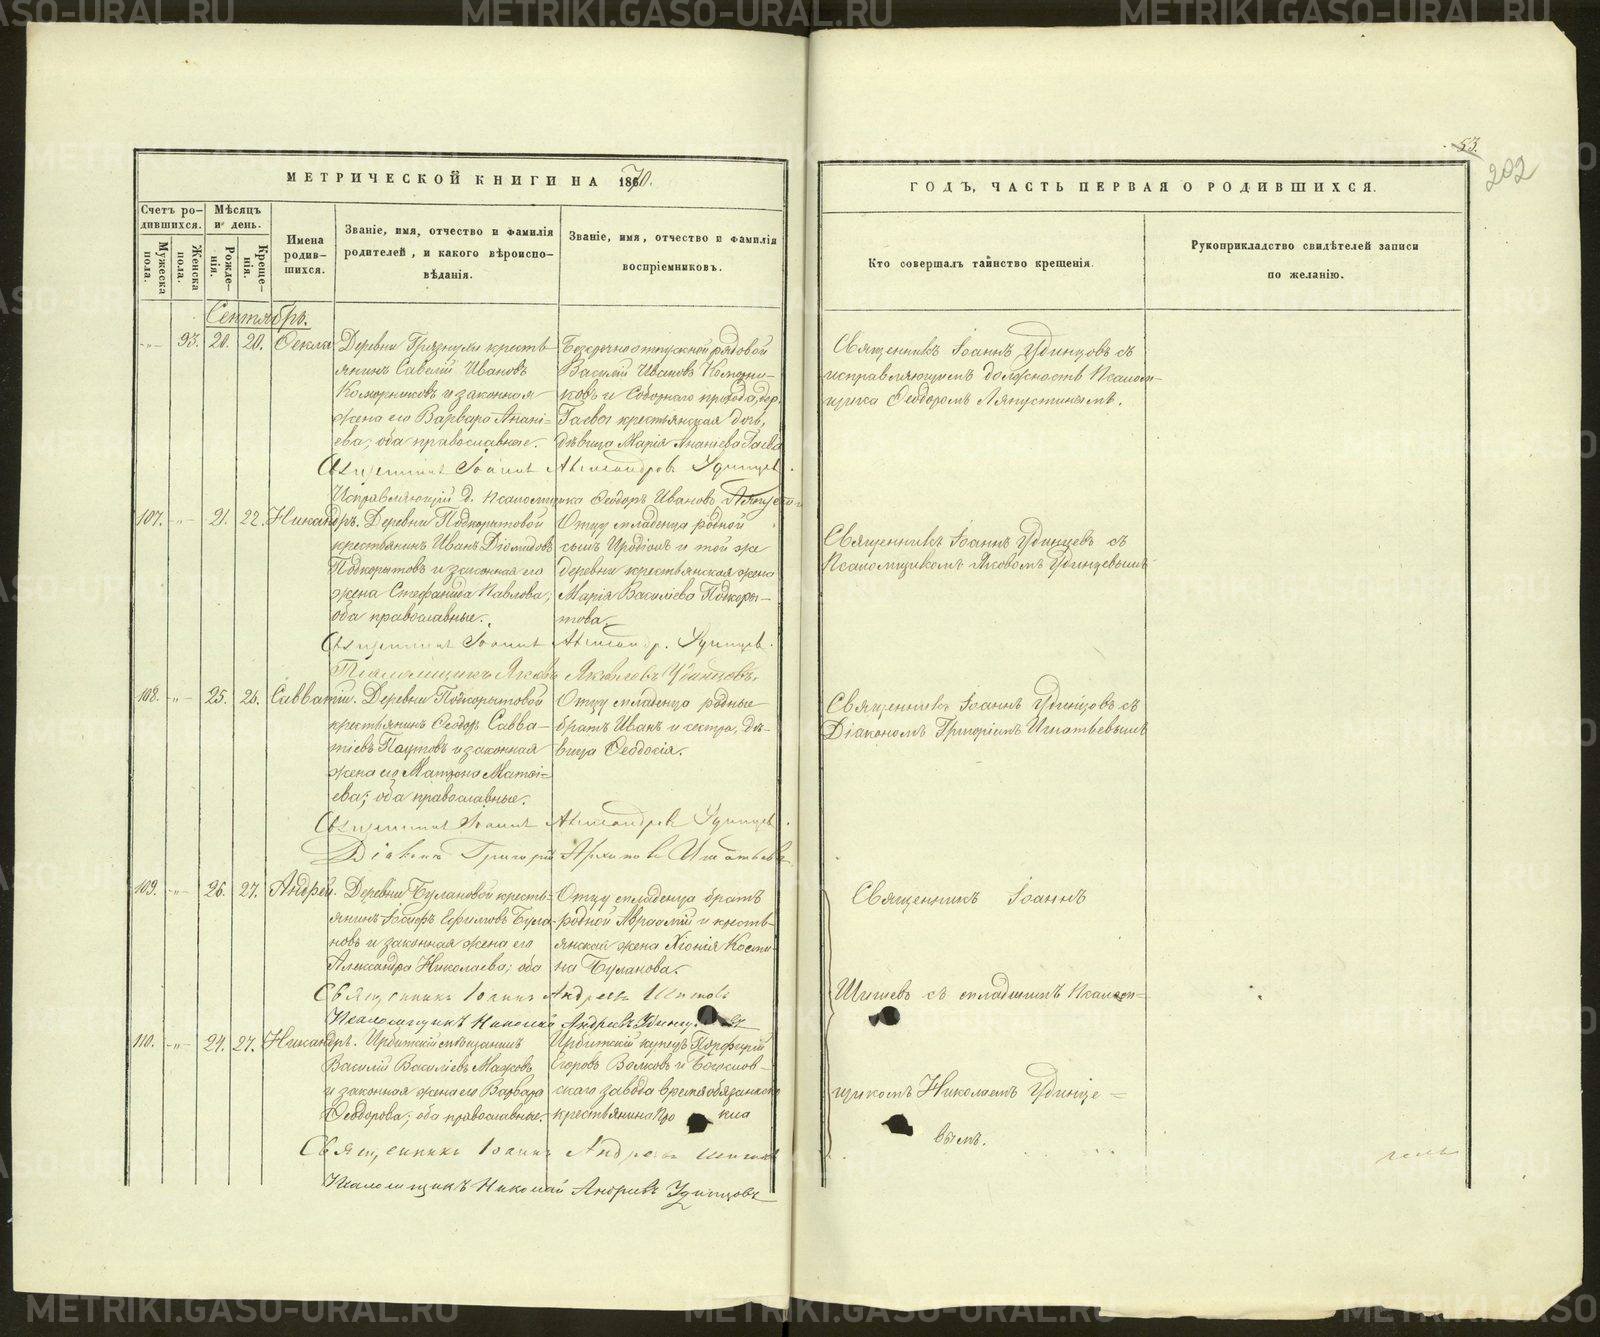 53.
202
МЕТРИЧЕСКОЙ КНИГИ НА 1870.
ГОДЪ, ЧАСТЬ ПЕРВАЯ О РОДИВШИХСЯ.
Счетъ ро-
дившихся.
Мужеска
пола.
Женска
пола.
Мѣсяцъ
и день.
Рожде-
нія.
Креще-
нія.
Имена
родив-
шихся.
Званіе, имя, отчество и фамилія
родителей, и какого вѣроиспо-
вѣданія.
Званіе, имя, отчество и фамилія
воспріемниковъ.
Кто совершалъ таинство крещенія.
Рукоприкладство свидѣтелей записи
по желанію.
Сентябрь.
93. 20. 20. Ѳекла
Деревни Грязнухи кресть-
янинъ Савелій Ивановъ
и законная
жена его Варвара Анані-
ева; оба православные.
Безсрочноотпускной рядовой
Василій Ивановъ
ковъ и Соборнаго прихода, дер.
Гаевой крестьянская дочь,
дѣвица Марія Ананіева Гаева
Священникъ Іоаннъ Удинцовъ съ
исправляющимъ должность Псалом-
щика Ѳеодоромъ Ляпустинымъ.
Священникъ Іоаннъ Александровъ Удинцевъ.
Исправляющій д. псаломщика Ѳеодоръ Ивановъ
107. 21. 22. Никандръ.
Деревни Подкорытовой
крестьянинъ Иванъ Діомидовъ
Подкорытовъ и законная его
жена Стефанида Павлова;
оба православные.
Отцу младенца родной
сынъ Иродіонъ и той же
деревни крестьянская жена
Марія Василіева Подкоры-
това.
Священникъ Іоаннъ Удинцевъ съ
Псаломщикомъ Яковомъ Удинцевымъ
Священникъ Іоаннъ Александр. Удинцевъ.
Псаломщикъ Яковъ Яковлевъ Удинцовъ.
108. 25. 26. Савватій.
Деревни Подкорытовой
крестьянинъ Ѳеодоръ Савва-
тіевъ Паутовъ и законная
жена его Матрона Матѳі-
ева; оба православные.
Отцу младенца родные
братъ Иванъ и сестра, дѣ-
вица Ѳеодосія.
Священникъ Іоаннъ Удинцовъ съ
Діакономъ Григоріемъ Игнатьевымъ
Священникъ Іоаннъ Александровъ Удинцевъ.
Діаконъ Григорій Игнатьевъ
109. 26. 27. Андрей.
Деревни Булановой кресть-
янинъ Іосифъ Ефимовъ Була-
новъ и законная жена его
Александра Николаева; оба
Отцу младенца братъ
родной Авраамій и кресть-
янская жена Хіонія Кости-
на Буланова.
Священникъ Іоаннъ
Шишевъ съ младшимъ Псалом-
щикомъ Николаемъ Удинце-
вымъ.
Священникъ Іоаннъ Андреевъ Шишовъ
Псаломщикъ Николай Андреевъ
110. 24. 27. Никандръ.
Ирбитскій мѣщанинъ
Василій Василіевъ
и законная жена его Варвара
Ѳеодорова; оба православные.
Ирбитскій купецъ Порфирій
Егоровъ Волковъ и Богослов-
скаго завода временнообязаннаго
крестьянина
Священникъ Іоаннъ Андреевъ Шишовъ
Псаломщикъ Николай Андреевъ Удинцовъ
METRIKI.GASO-URAL.RU